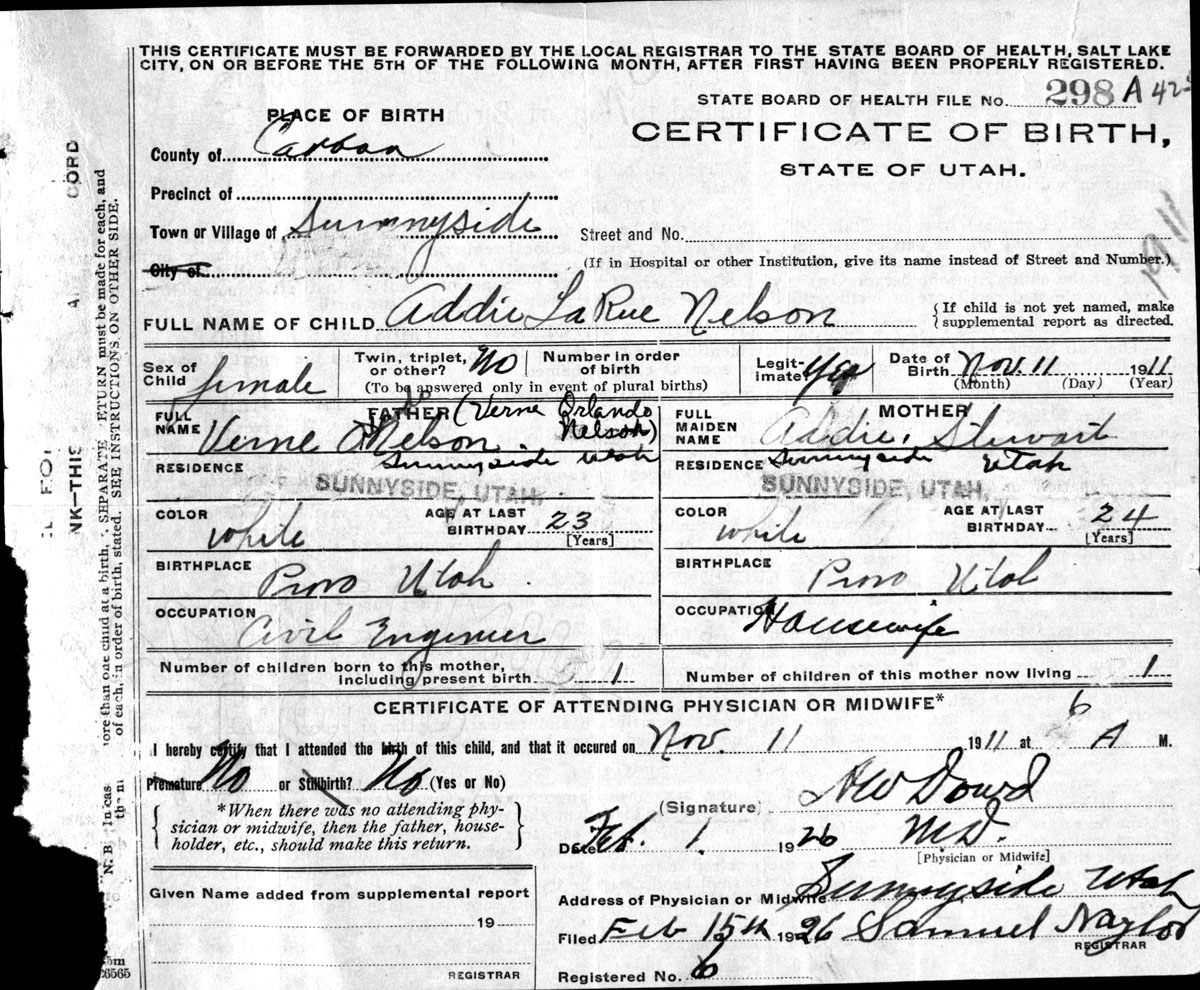 THIS CERTIFICATE MUST BE FORWARDED BY THE LOCAL REGISTRAR TO THE STATE BOARD OF HEALTH, SALT LAKE
CITY, ON OR BEFORE THE 5TH OF THE FOLLOWING MONTH, AFTER FIRST HAVING BEEN PROPERLY REGISTERED.
STATE BOARD OF HEALTH FILE No. 298 A 425
PLACE OF BIRTH
CERTIFICATE OF BIRTH,
STATE OF UTAH.
County of Carbon
Precinct of
Town or Village of Sunnyside
Street and No.
City of
(If in Hospital or other Institution, give its name instead of Street and Number.)
1911
FULL NAME OF CHILD Addie LaRue Nelson
{If child is not yet named, make
supplemental report as directed.
Sex of Child female
Twin, triplet, or other? No
(To be answered only in event of plural births)
Number in order of birth
Legit-imate? Yes
Date of Birth Nov. 11 1911
(Month) (Day) (Year)
FATHER (Verne Orlando Nelson)
FULL NAME Verne O Nelson
RESIDENCE Sunnyside Utah
SUNNYSIDE, UTAH.
COLOR white
AGE AT LAST BIRTHDAY 23
[Years]
BIRTHPLACE Provo Utah
OCCUPATION Civil Engineer
MOTHER
FULL MAIDEN NAME Addie, Stewart
RESIDENCE Sunnyside Utah
SUNNYSIDE, UTAH.
COLOR white
AGE AT LAST BIRTHDAY 24
[Years]
BIRTHPLACE Provo Utah
OCCUPATION Housewife
Number of children born to this mother,
including present birth 1
Number of children of this mother now living 1
CERTIFICATE OF ATTENDING PHYSICIAN OR MIDWIFE*
I hereby certify that I attended the birth of this child, and that it occured on Nov. 11 1911 at 6 A M.
Premature No or Stillbirth? No (Yes or No)
{*When there was no attending phy-
sician or midwife, then the father, house-
holder, etc., should make this return.}
(Signature) A W Dowd
Date Feb. 1 1926 M.D.
[Physician or Midwife]
Address of Physician or Midwife Sunnyside Utah
Filed Feb 15th 1926 Samuel Naylor
REGISTRAR
Registered No. 6
Given Name added from supplemental report
19
REGISTRAR
CORD
NK—THIS
SEPARATE ETURN must be made for each, and
SEE INSTRUCTIONS ON OTHER SIDE.
ore than one child at a birth,
of each, in order of birth, stated.
N. B. In cas
the n
5m
26565